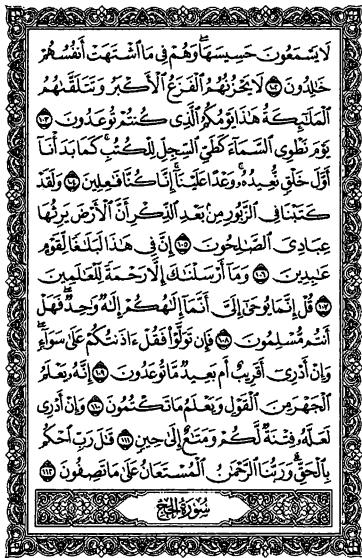 لَا يَسْمَعُونَ حَسِيسَهَا ۖ وَهُمْ فِى مَا ٱشْتَهَتْ أَنفُسُهُمْ
خَٰلِدُونَ ١٠٢ لَا يَحْزُنُهُمُ ٱلْفَزَعُ ٱلْأَكْبَرُ وَتَتَلَقَّىٰهُمُ
ٱلْمَلَٰٓئِكَةُ هَٰذَا يَوْمُكُمُ ٱلَّذِى كُنتُمْ تُوعَدُونَ ١٠٣
يَوْمَ نَطْوِى ٱلسَّمَآءَ كَطَىِّ ٱلسِّجِلِّ لِلْكُتُبِ ۚ كَمَا بَدَأْنَآ
أَوَّلَ خَلْقٍ نُّعِيدُهُۥ ۚ وَعْدًا عَلَيْنَآ ۚ إِنَّا كُنَّا فَٰعِلِينَ ١٠٤ وَلَقَدْ
كَتَبْنَا فِى ٱلزَّبُورِ مِنۢ بَعْدِ ٱلذِّكْرِ أَنَّ ٱلْأَرْضَ يَرِثُهَا
عِبَادِىَ ٱلصَّٰلِحُونَ ١٠٥ إِنَّ فِى هَٰذَا لَبَلَٰغًا لِّقَوْمٍ
عَٰبِدِينَ ١٠٦ وَمَآ أَرْسَلْنَٰكَ إِلَّا رَحْمَةً لِّلْعَٰلَمِينَ
١٠٧ قُلْ إِنَّمَا يُوحَىٰٓ إِلَىَّ أَنَّمَآ إِلَٰهُكُمْ إِلَٰهٌ وَٰحِدٌ ۖ فَهَلْ
أَنتُم مُّسْلِمُونَ ١٠٨ فَإِن تَوَلَّوْا۟ فَقُلْ ءَاذَنتُكُمْ عَلَىٰ سَوَآءٍ ۖ
وَإِنْ أَدْرِىٓ أَقَرِيبٌ أَم بَعِيدٌ مَّا تُوعَدُونَ ١٠٩ إِنَّهُۥ يَعْلَمُ
ٱلْجَهْرَ مِنَ ٱلْقَوْلِ وَيَعْلَمُ مَا تَكْتُمُونَ ١١٠ وَإِنْ أَدْرِى
لَعَلَّهُۥ فِتْنَةٌ لَّكُمْ وَمَتَٰعٌ إِلَىٰ حِينٍ ١١١ قَٰلَ رَبِّ ٱحْكُم
بِٱلْحَقِّ ۗ وَرَبُّنَا ٱلرَّحْمَٰنُ ٱلْمُسْتَعَانُ عَلَىٰ مَا تَصِفُونَ ١١٢
سُورَةُ الحَجِّ